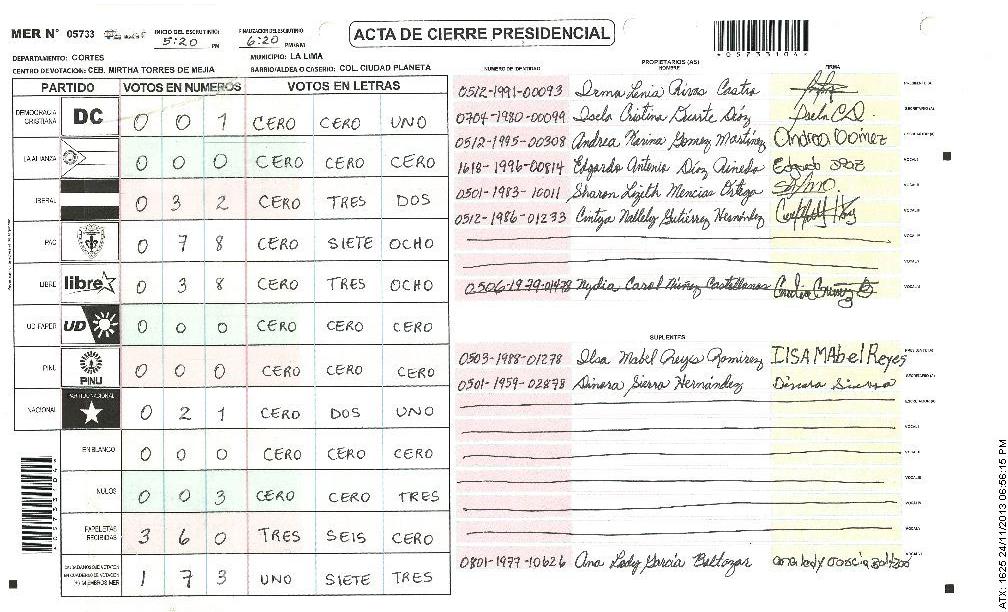 MER N° 05733 INICIO DEL ESCRUTINIO: 5:20 PM FINALIZACION DEL ESCRUTINIO 6:20 PM/AM ACTA DE CIERRE PRESIDENCIAL *05733104*
DEPARTAMENTO: CORTES MUNICIPIO: LA LIMA
CENTRO DE VOTACION: CEB. MIRTHA TORRES DE MEJIA BARRIO/ALDEA O CASERIO: COL. CIUDAD PLANETA
PARTIDO VOTOS EN NUMEROS VOTOS EN LETRAS
DEMOCRACIA CRISTIANA DC 0 0 1 CERO CERO UNO
LA ALIANZA 0 0 0 CERO CERO CERO
LIBERAL 0 3 2 CERO TRES DOS
PAC 0 7 8 CERO SIETE OCHO
LIBRE libre 0 3 8 CERO TRES OCHO
UD-FAPER UD 0 0 0 CERO CERO CERO
PINU PINU 0 0 0 CERO CERO CERO
NACIONAL PARTIDO NACIONAL 0 2 1 CERO DOS UNO
EN BLANCO 0 0 0 CERO CERO CERO
NULOS 0 0 3 CERO CERO TRES
PAPELETAS RECIBIDAS 3 6 0 TRES SEIS CERO
CIUDADANOS QUE VOTARON EN CUADERNO DE VOTACION (+) MIEMBROS MER 1 7 3 UNO SIETE TRES
PROPIETARIOS (AS)
NUMERO DE IDENTIDAD NOMBRE FIRMA
0512-1991-00093 Irma Lenia Rivas Castro PRESIDENTE (A)
0704-1980-00099 Isela Cristina Duarte Díaz Isela C.D. SECRETARIO (A)
0512-1995-00308 Andrea Karina Gomez Martínez Andrea Gómez ESCRUTADOR (A)
1618-1996-00814 Edgardo Antonio Díaz Pineda Edgardo Díaz VOCAL I
0501-1983-10011 Sharon Lizeth Mencias Ortega VOCAL II
0512-1986-01233 Cintya Nallely Gutiérrez Hernández VOCAL III
VOCAL IV
VOCAL V
0506-1979-01478 Nydia Carol Núñez Castellanos VOCAL VI
SUPLENTES
0503-1988-01278 Ilsa Mabel Reyes Ramirez IlSA MAbel Reyes PRESIDENTE (A)
0501-1959-02878 Dinora Sierra Hernández Dinora Sierra SECRETARIO (A)
ESCRUTADOR (A)
VOCAL I
VOCAL II
VOCAL III
VOCAL IV
VOCAL V
0801-1977-10626 Ana Lady García Baltazar ana lady García Baltazar VOCAL VI
ATX: 1625 24/11/2013 06:56:15 PM